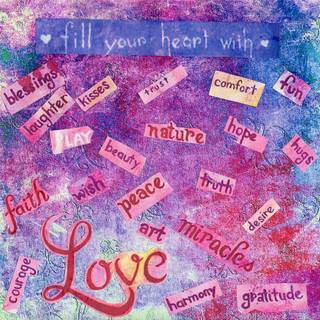 fill your heart with
blessings
laughter
kisses
trust
comfort
fun
PLAY
beauty
nature
hope
hugs
faith
wish
peace
truth
desire
art
miracles
Love
courage
harmony
gratitude